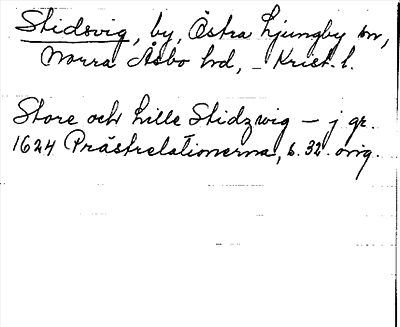 Stidsvig, by, Östra Ljungby sn,
Norra Åsbo hd, – Krist. l.
Store och Lille Stidzwig – j gr.
1624 Prästrelationerna, s. 32. orig.